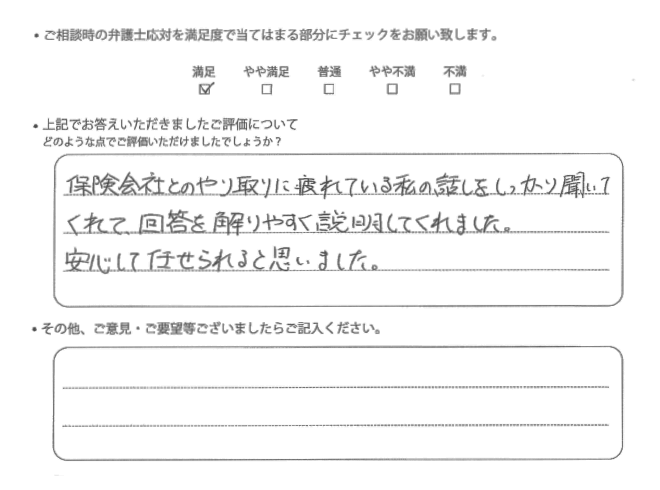 ・ご相談時の弁護士応対を満足度で当てはまる部分にチェックをお願い致します。
満足 やや満足 普通 やや不満 不満
☑ □ □ □ □
・上記でお答えいただきましたご評価について
どのような点でご評価いただけましたでしょうか?
保険会社とのやり取りに疲れている私の話しをしっかり聞いて
くれて、回答を解りやすく説明してくれました。
安心して任せられると思いました。
・その他、ご意見・ご要望等ございましたらご記入ください。